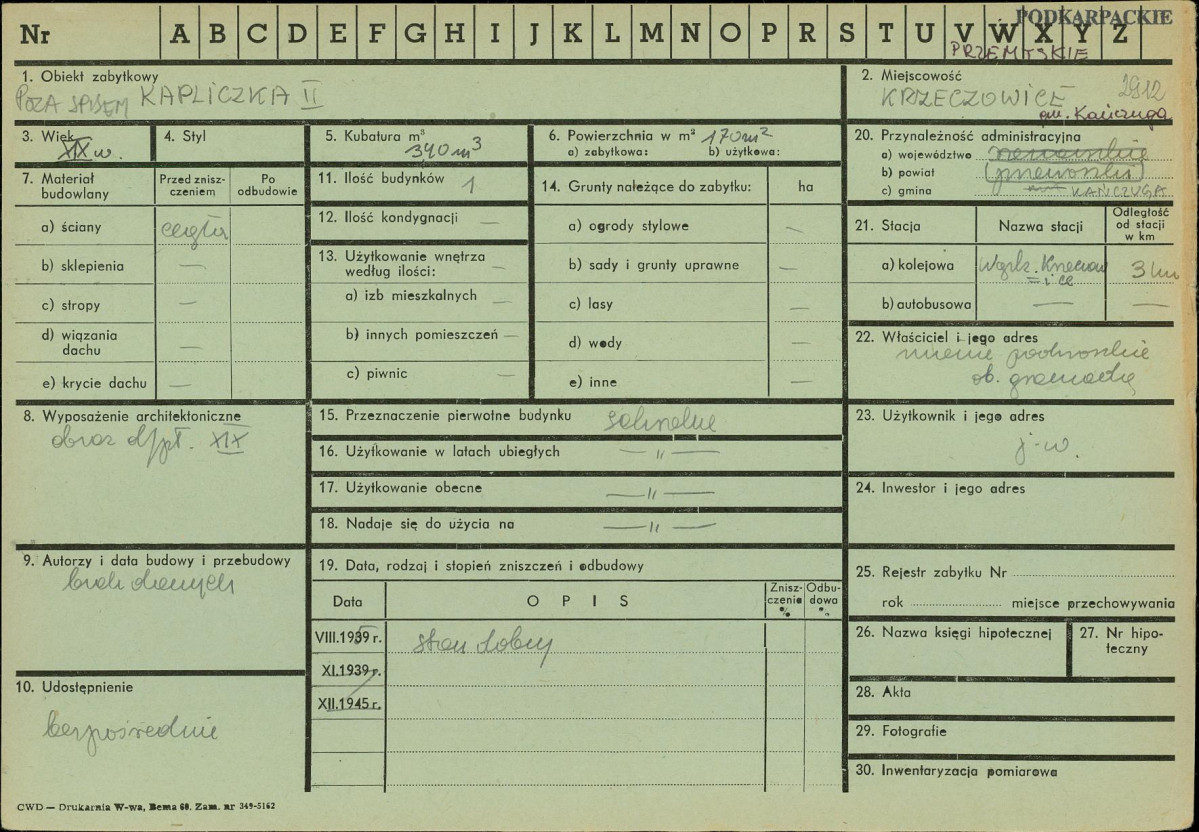 PODKARPACKIE
Nr A B C D E F G H I J K L M N O P R S T U V W X Y Z
PRZEMYSKIE
1. Obiekt zabytkowy
POZA SPISEM KAPLICZKA II
2. Miejscowość
KRZECZOWICE 2912
gm. Kańczuga
3. Wiek
XIX w.
4. Styl
5. Kubatura m³
340 m³
6. Powierzchnia w m² 170 m²
a) zabytkowa: b) użytkowa:
20. Przynależność administracyjna
a) województwo
b) powiat przeworski
c) gmina KAŃCZUGA
7. Materiał budowlany
Przed zniszczeniem
Po odbudowie
a) ściany cegła
b) sklepienia —
c) stropy —
d) wiązania dachu —
e) krycie dachu —
11. Ilość budynków 1
12. Ilość kondygnacji —
13. Użytkowanie wnętrza według ilości: —
a) izb mieszkalnych —
b) innych pomieszczeń —
c) piwnic —
14. Grunty należące do zabytku: ha
a) ogrody stylowe —
b) sady i grunty uprawne —
c) lasy —
d) wody —
e) inne —
21. Stacja
Nazwa stacji
Odległość od stacji w km
a) kolejowa 3 km
b) autobusowa — —
22. Właściciel i jego adres
mienie
ob. gromada
8. Wyposażenie architektoniczne
obraz d/pł. XIX
15. Przeznaczenie pierwotne budynku sakralne
16. Użytkowanie w latach ubiegłych — " —
17. Użytkowanie obecne — " —
18. Nadaje się do użycia na — " —
23. Użytkownik i jego adres
j.w.
24. Inwestor i jego adres
9. Autorzy i data budowy i przebudowy
brak danych
19. Data, rodzaj i stopień zniszczeń i odbudowy
Data
OPIS
Zniszczenie %
Odbudowa %
VIII.1939 r. stan dobry
XI.1939 r.
XII.1945 r.
25. Rejestr zabytku Nr
rok miejsce przechowywania
26. Nazwa księgi hipotecznej
27. Nr hipoteczny
10. Udostępnienie
bezpośrednie
28. Akta
29. Fotografie
30. Inwentaryzacja pomiarowa
CWD — Drukarnia W-wa, Bema 60. Zam. nr 349-5162